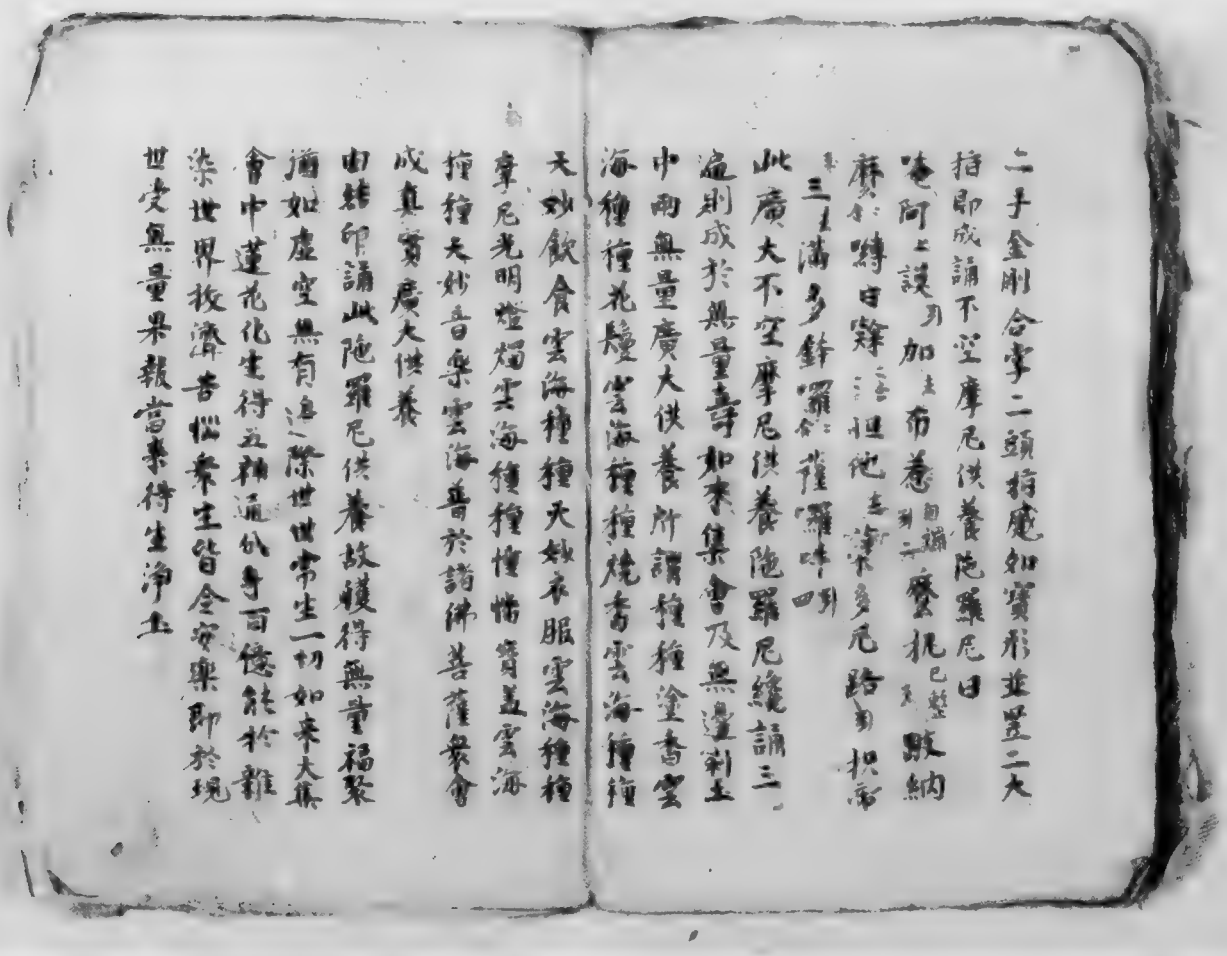 二手金剛合掌二頭指蹙如寶形並竪二大
指即成誦不空摩尼供養陀羅尼曰
唵阿上謨引加去布惹自攞引二麼抳已整引跛納
麽二合嚩日𭶑二合怛他去蘖多尾路引枳帝
三去滿多鉢囉二合薩囉吽引四
此廣大不空摩尼供養陀羅尼纔誦三
遍則成於無量壽如來集會及無邊剎土
中雨無量廣大供養所謂種種塗香雲
海種種花鬘雲海種種燒香雲海種種
天妙飲食雲海種種天妙衣服雲海種種
摩尼光明燈燭雲海種種憧幡寶盖雲海
種種天妙音樂雲海普於諸佛菩薩衆會
成真實廣大供養
由結印誦此陁羅尼供養故獲得無量福聚
猶如虛空無有邊際世世常生一切如来大集
會中蓮花化生得五神通分身百億能於雜
染世界救濟苦惱衆生皆令安樂即於現
世受無量果報當來得生淨土